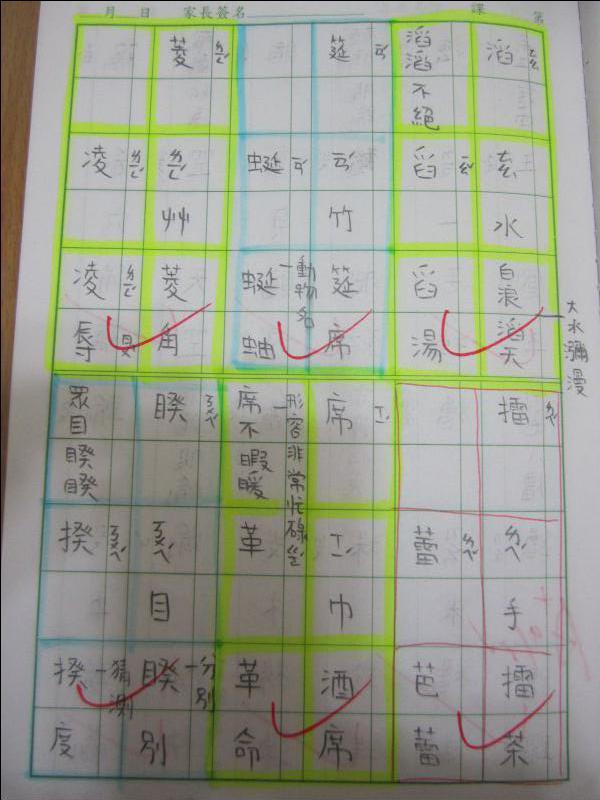 月 日 家長簽名 課 第
滔 ㄊㄠ
ㄊㄠ
水
白浪滔天
大水瀰漫
滔滔不絕
舀
舀湯
筵 ㄧㄢˊ
ㄧㄢˊ
竹
筵席
動物名
蜒 ㄧㄢˊ
蜒蚰
菱 ㄌㄧㄥˊ
ㄌㄧㄥˊ
艸
菱角
凌 ㄌㄧㄥˊ
凌 ㄌㄧㄥˊ
辱
擂 ㄌㄟˊ
ㄌㄟˊ
手
擂茶
蕾
芭蕾
席 ㄒㄧˊ
ㄒㄧˊ
巾
酒席
形容非常忙碌
席不暇暖
革
革命
睽 ㄎㄨㄟˊ
ㄎㄨㄟˊ
目
睽別
分別
眾目睽睽
揆 ㄎㄨㄟˊ
揆度
猜測